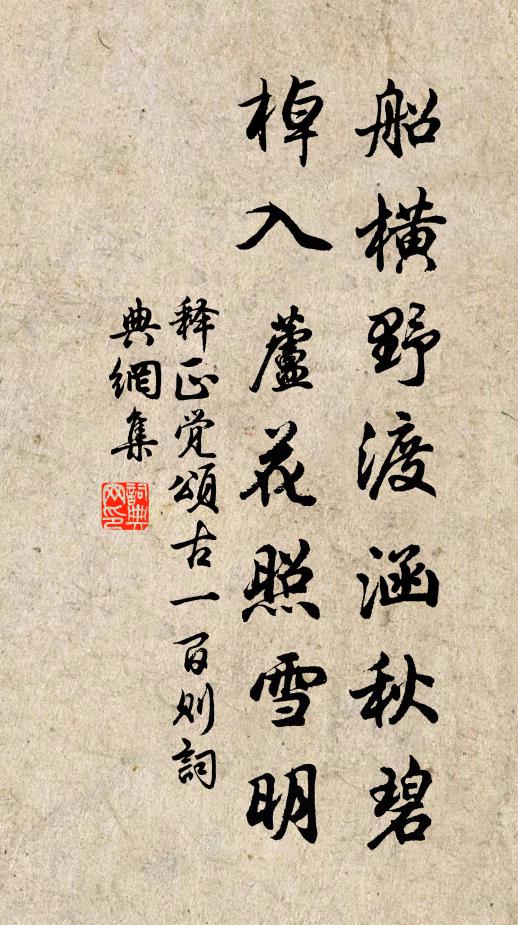 船橫野渡涵秋碧
棹入蘆花照雪明
释正觉頌古一百则詞
典網集
詞典
网印